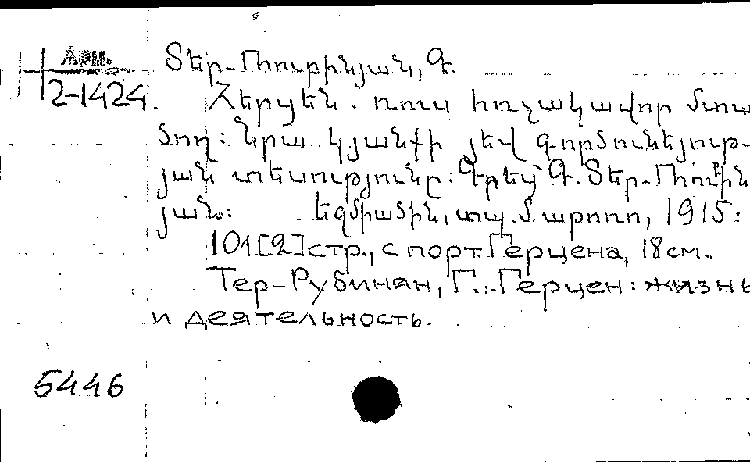 Арм. Տեր-Ռուբինյան, Գ.
2-1424. Հերցեն. ռուս հռչակավոր մտա
ծող: Նրա կյանքի յեվ գործունեյութ-
յան տեսությունը: Գրեց Գ. Տեր-Ռուբին
յան: Եջմիածին, տպ. Մ. 1915:
101 [2] стр., с порт. Герцена, 18 см.
Тер-Рубинян, Г. Герцен: жизнь
и деятельность.
5446